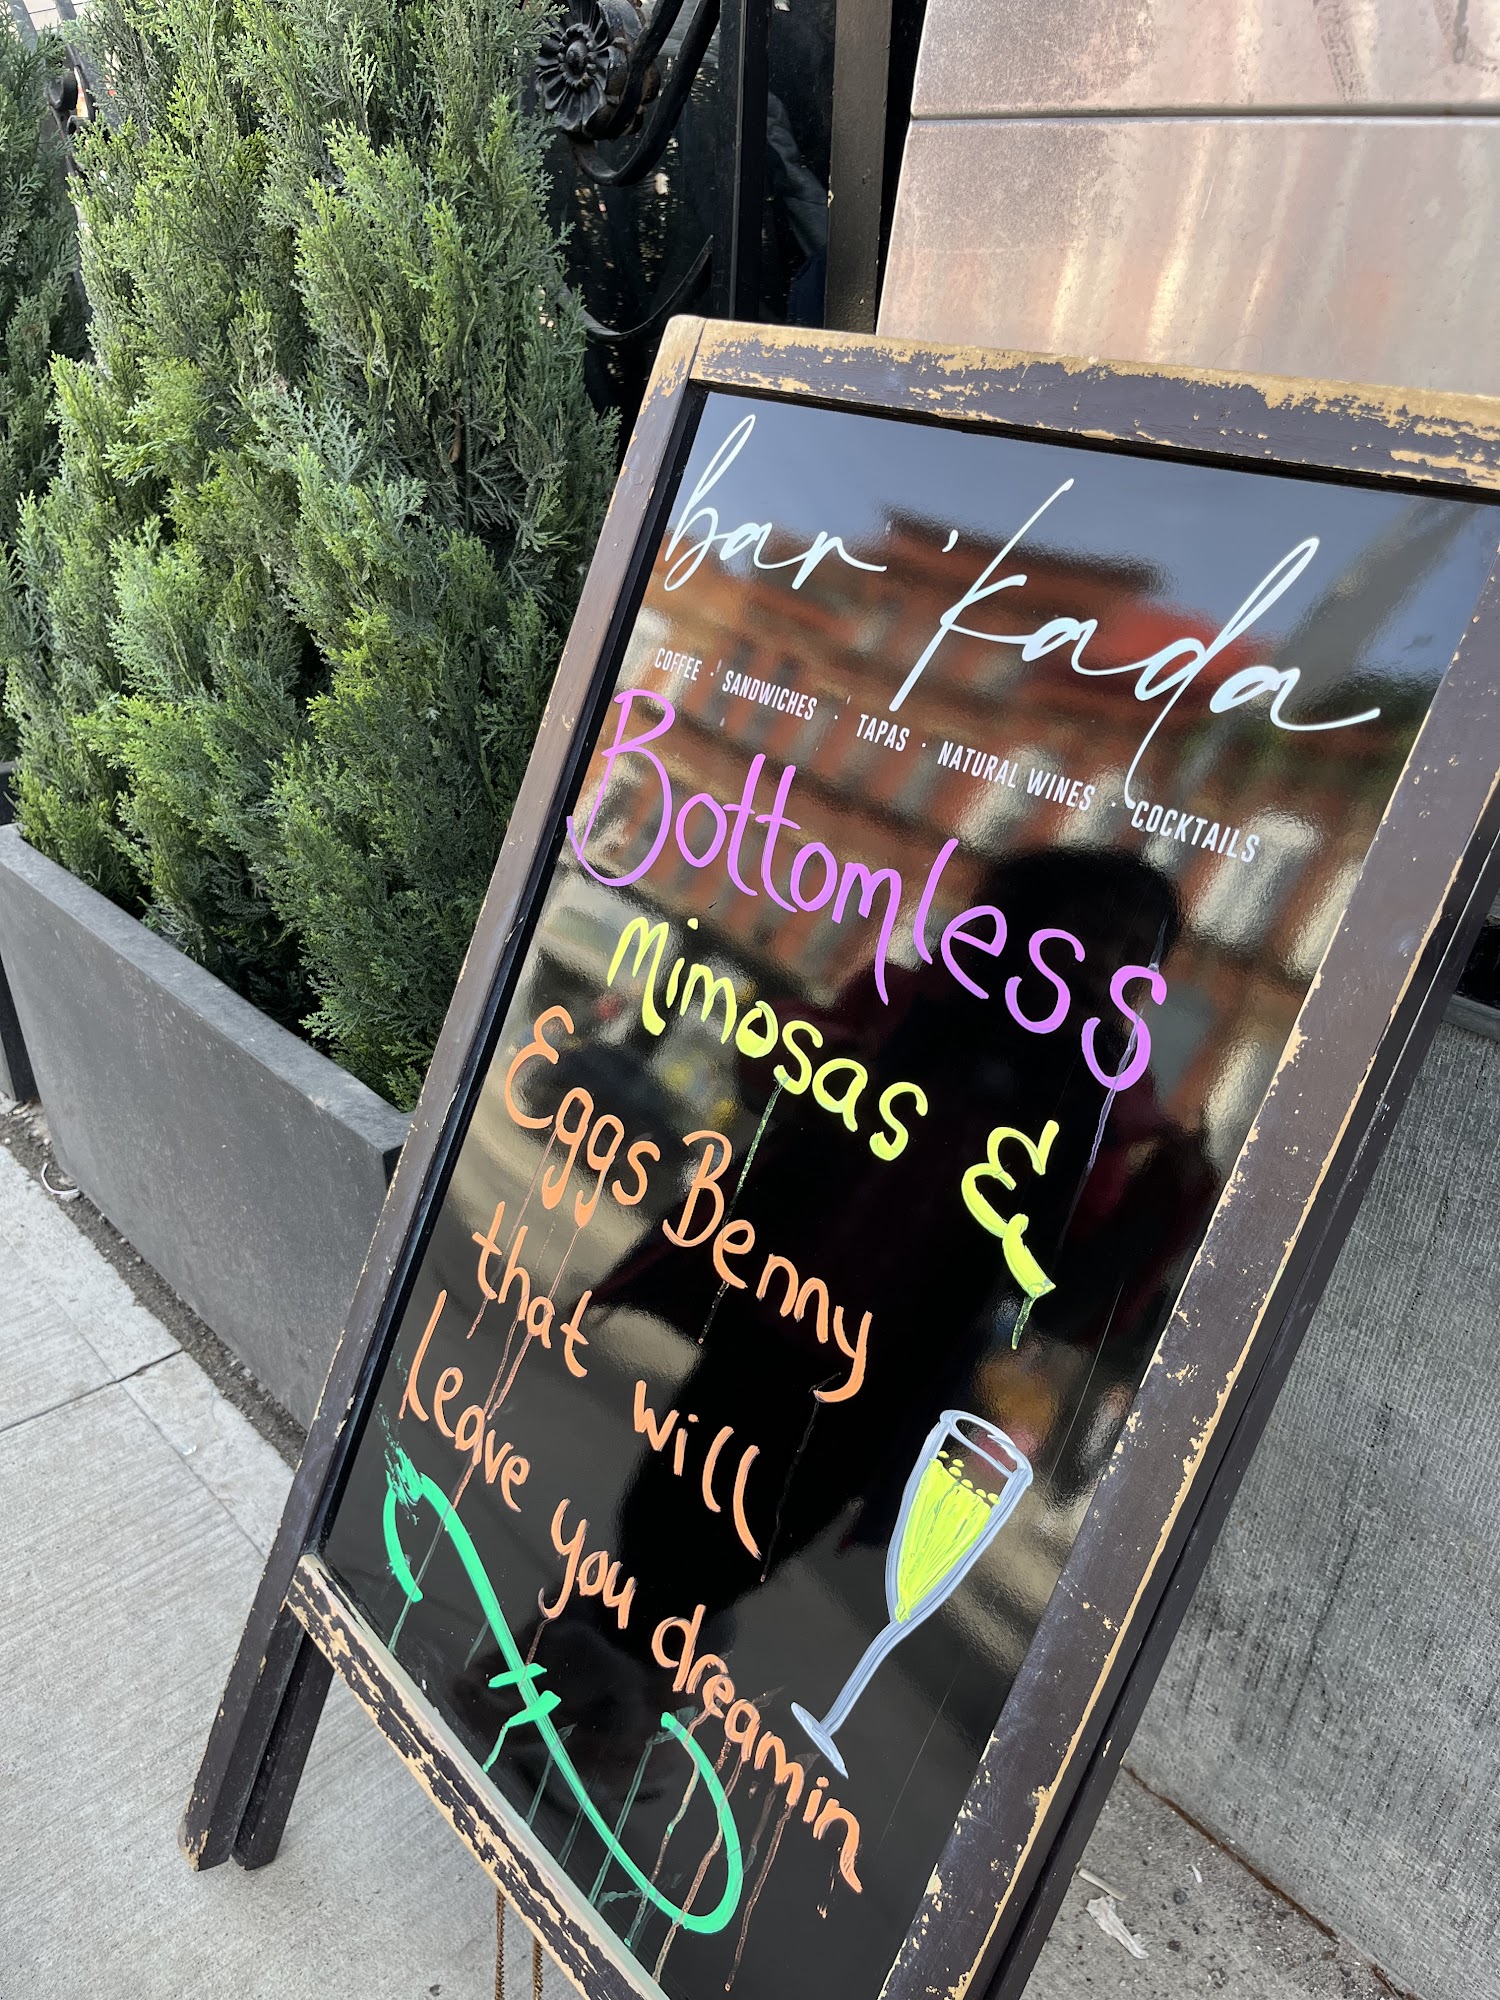 bar 'kada
COFFEE · SANDWICHES · TAPAS · NATURAL WINES · COCKTAILS
Bottomless
mimosas &
Eggs Benny
that will
leave you dreamin